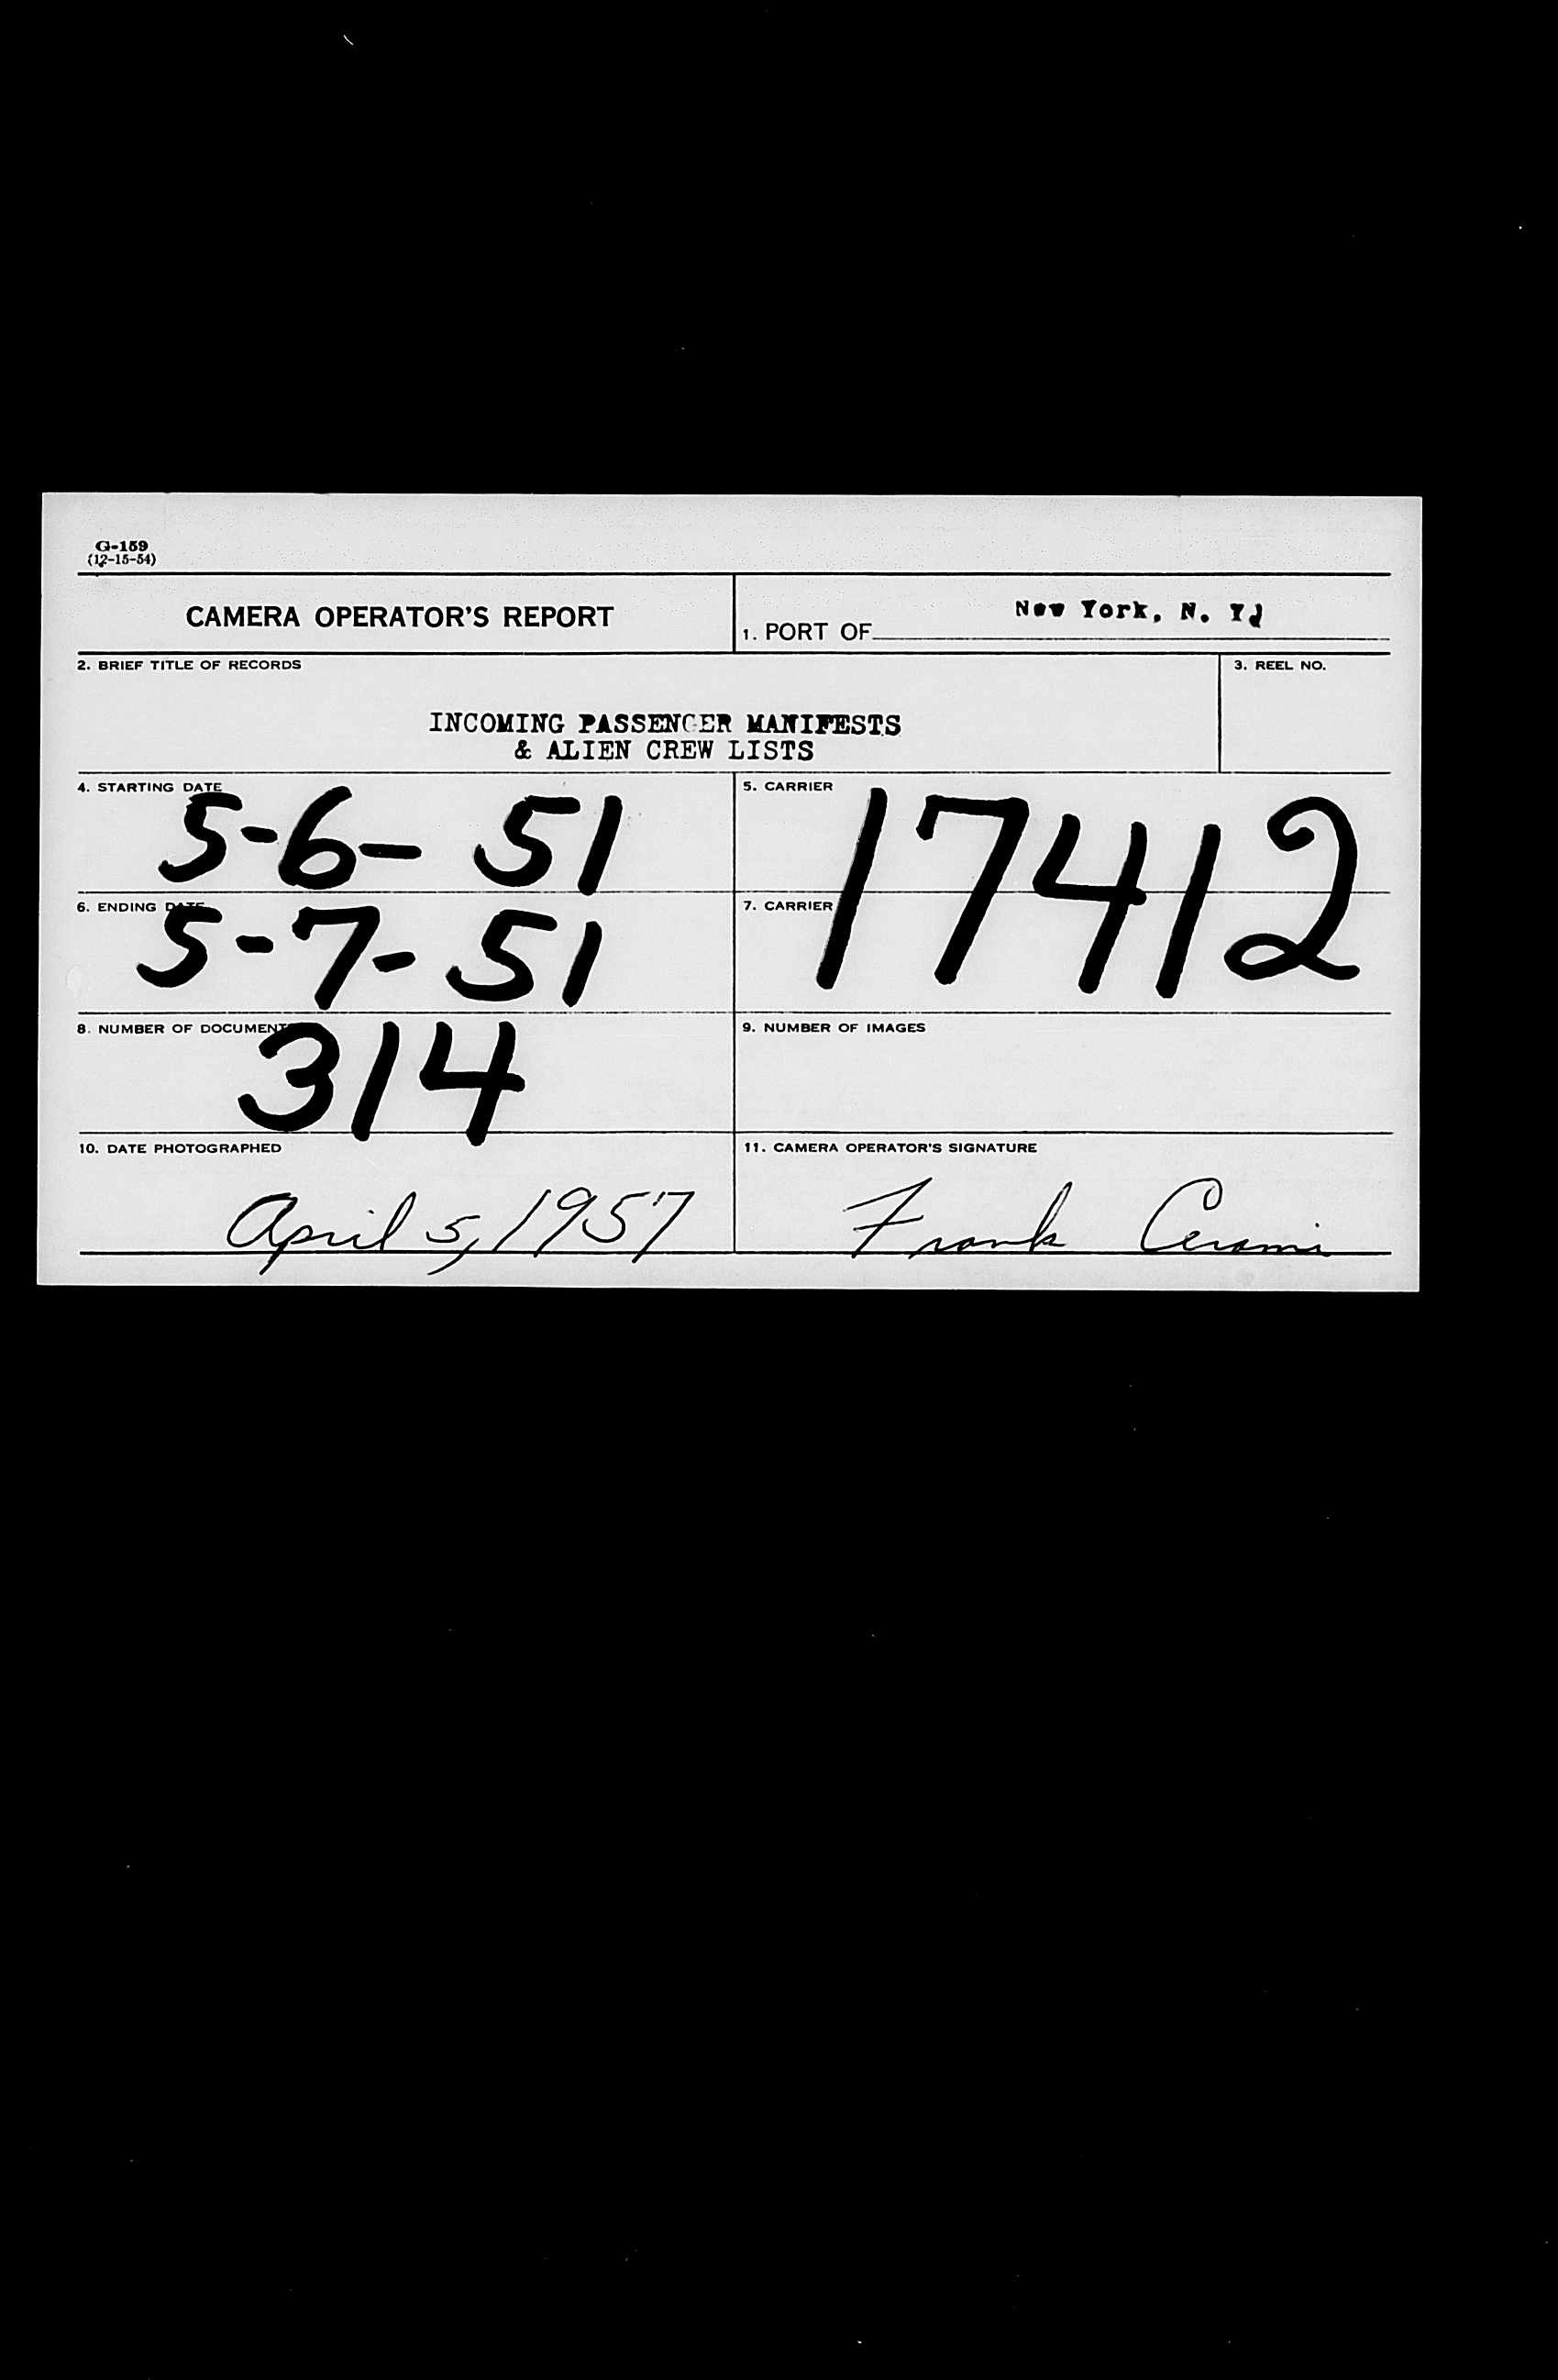 G-159
(12-15-54)
CAMERA OPERATOR'S REPORT
1. PORT OF New York, N. Y.
2. BRIEF TITLE OF RECORDS
3. REEL NO.
INCOMING PASSENGER MANIFESTS
& ALIEN CREW LISTS
4. STARTING DATE
5-6-51
5. CARRIER
17412
6. ENDING DATE
5-7-51
7. CARRIER
8. NUMBER OF DOCUMENTS
314
9. NUMBER OF IMAGES
10. DATE PHOTOGRAPHED
April 5, 1957
11. CAMERA OPERATOR'S SIGNATURE
Frank Cerami